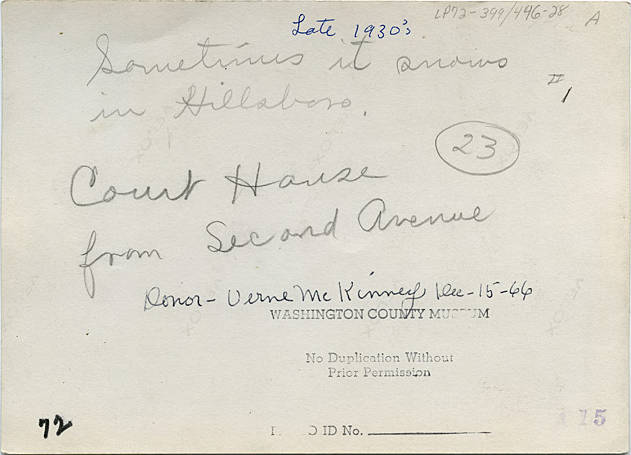 Late 1930's
LP72-399/496-28 A
Sometimes it snows
in Hillsboro.
II
1
23
Court House
from Second Avenue
Donor- Verne McKinney Dec-15-66
WASHINGTON COUNTY MUSEUM
No Duplication Without
Prior Permission
72
ID No.
15